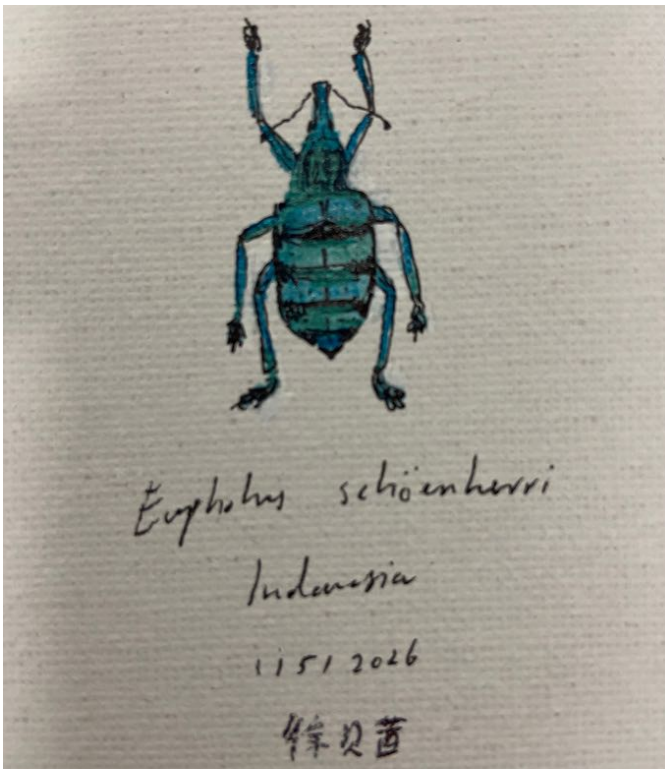 Eupholus schöenherri
Indonesia
1151 2026
徐贝茜